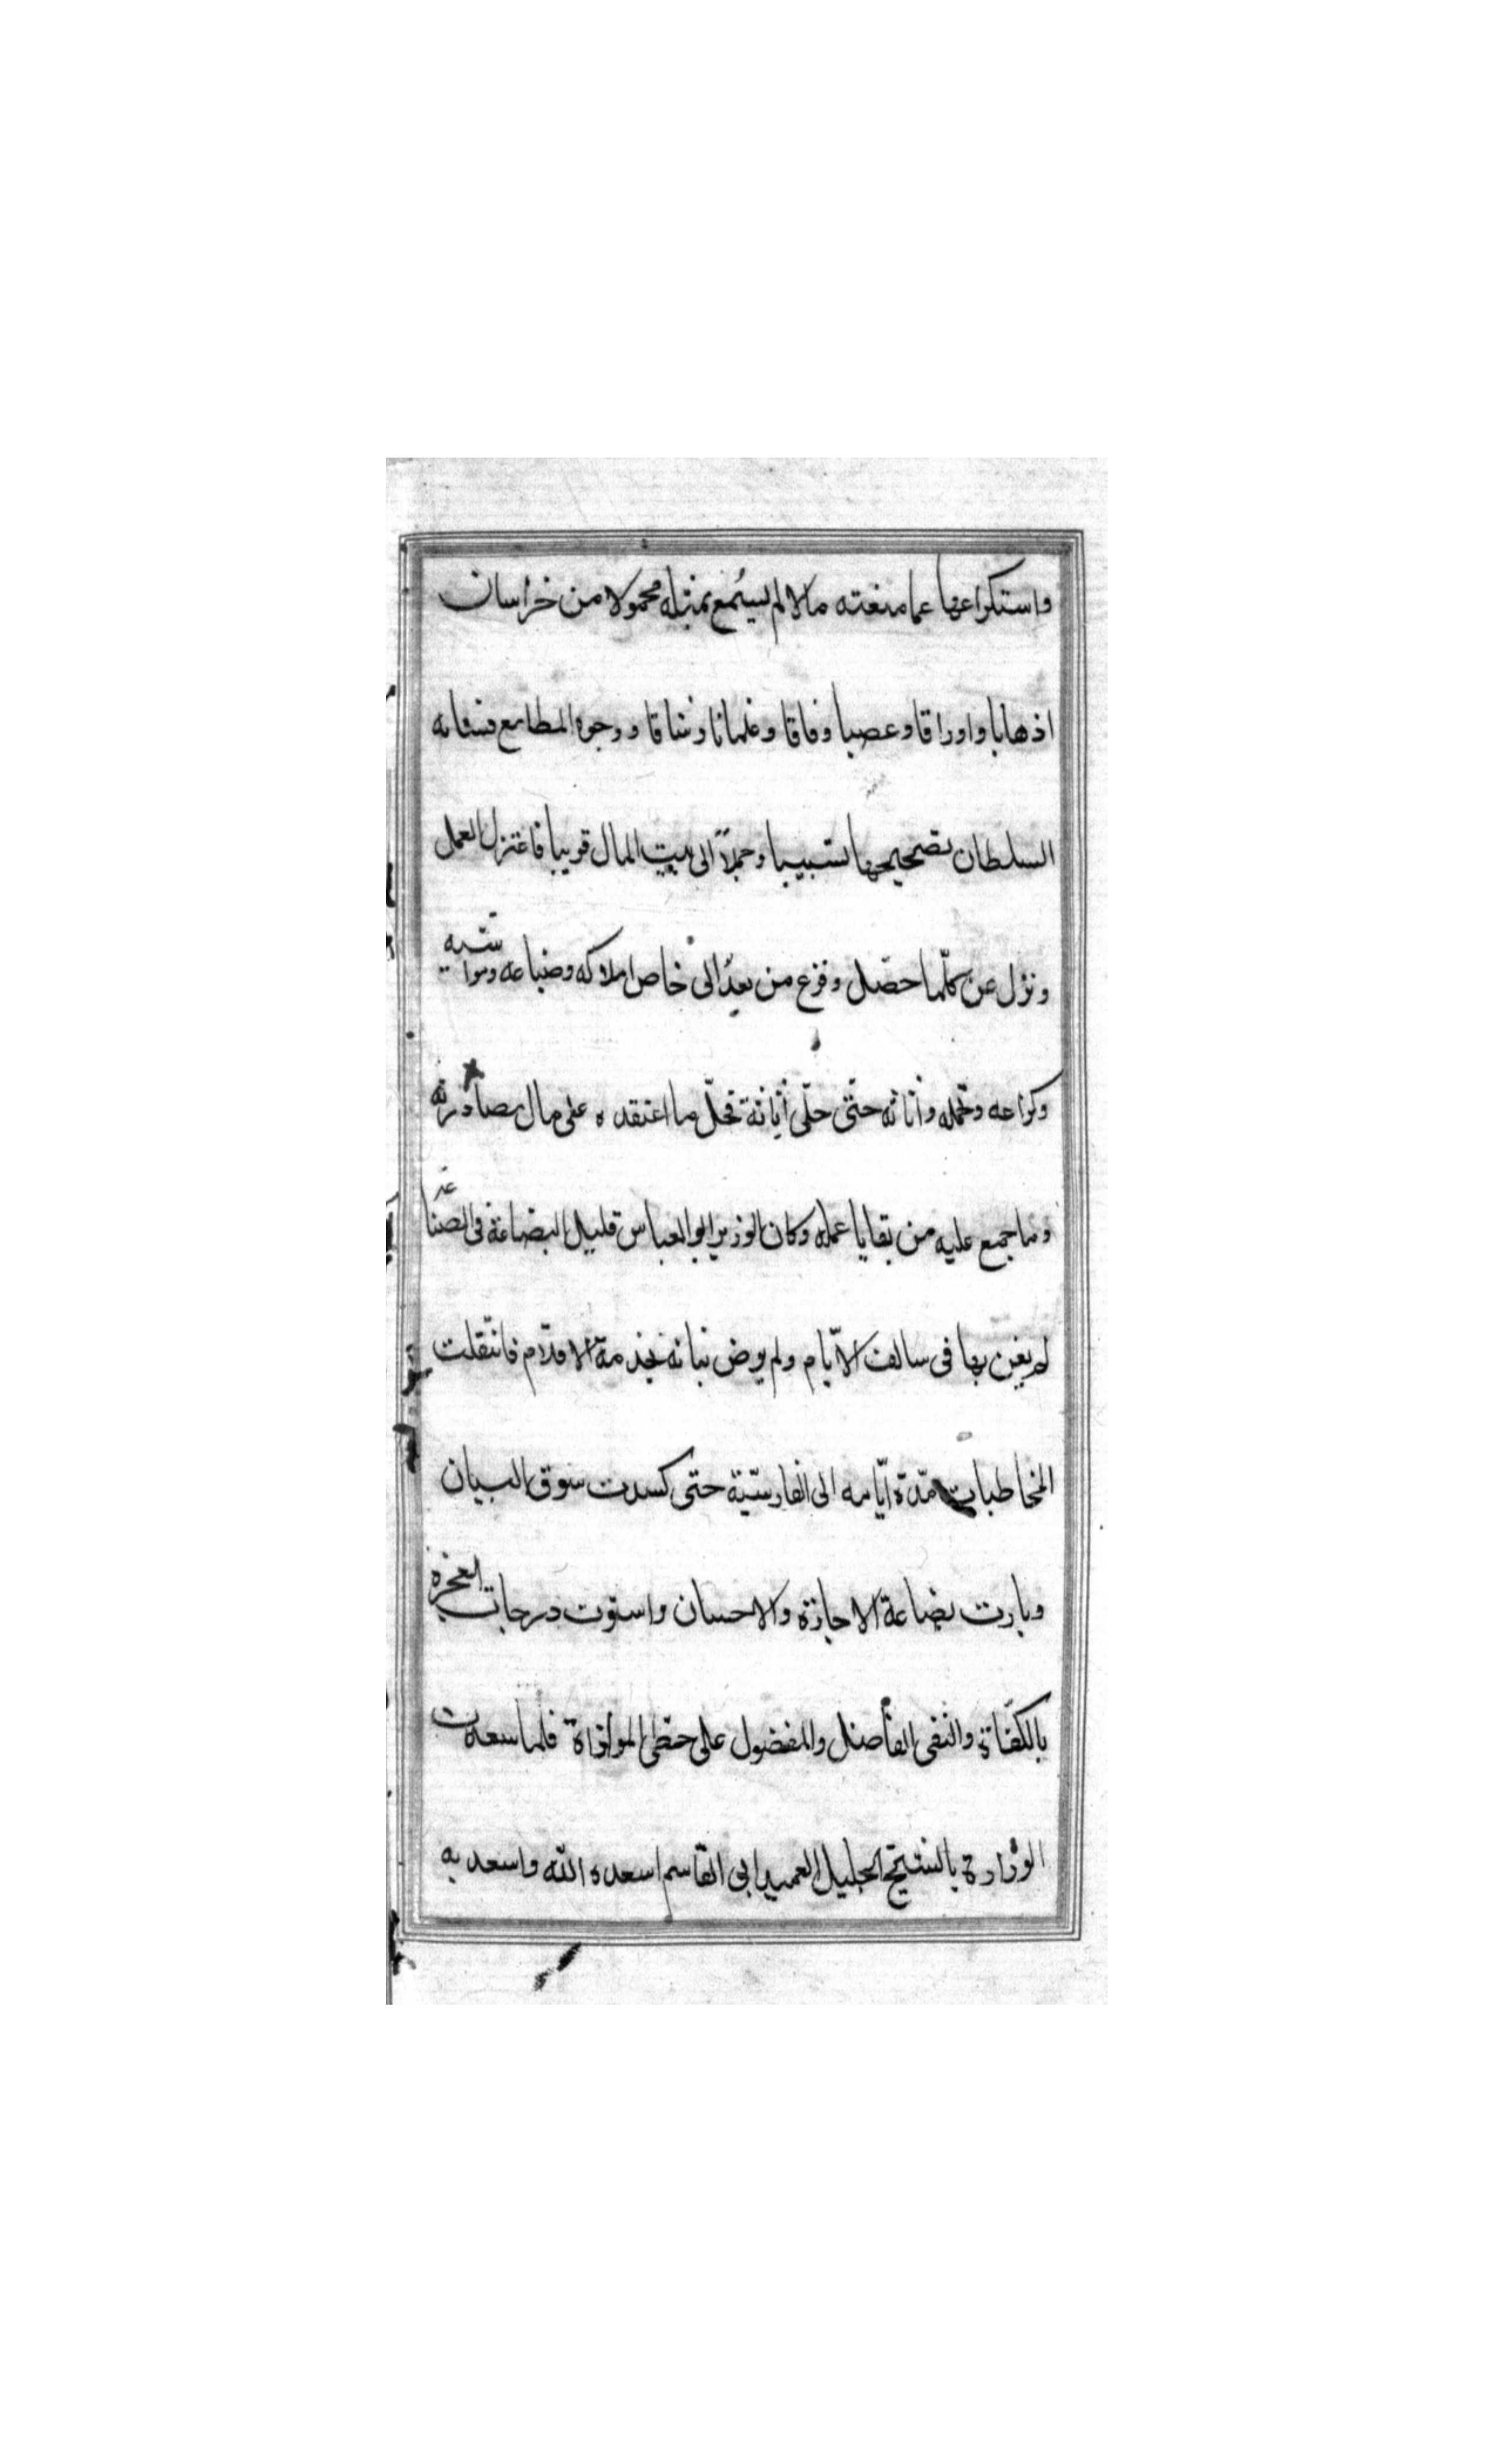 واستكراعها عما منعته مالا لم يسمع بمثله محمولا من خراسان
اذهابا واوراقا وعصبا وفاقا وغلمانا وشاقا ووجوه المطامع
السلطان بتصحيحها تسبيبا وحملا الى بيت المال قريبا فاعتزل العمل
ونزل عن كلّما حصّل وفزع من بعدُ الى خاص املاكه وضياعه ومواشيه
وكراعه واثاثه حتّى حلّى ما اعتقده على مال مصادرته
وما جمع عليه من بقايا عمله وكان الوزير ابو العباس قليل البضاعة فى الصّناعة
لم يعن بها فى سالف الايّام ولم يرض بنانه بخدمة الاقلام فانتقلت
المخاطبات مدّة ايّامه الى الفارسيّة حتى كسدت سوق البيان
وبارت بضاعة الاجازة والاحسان واستوت درجات العجزة
بالكفاة والتقى الفاضل والمفضول على خطّى الموازاة فلما سعدت
الوزارة بالشيخ الجليل العميد ابى القاسم اسعده الله واسعد به